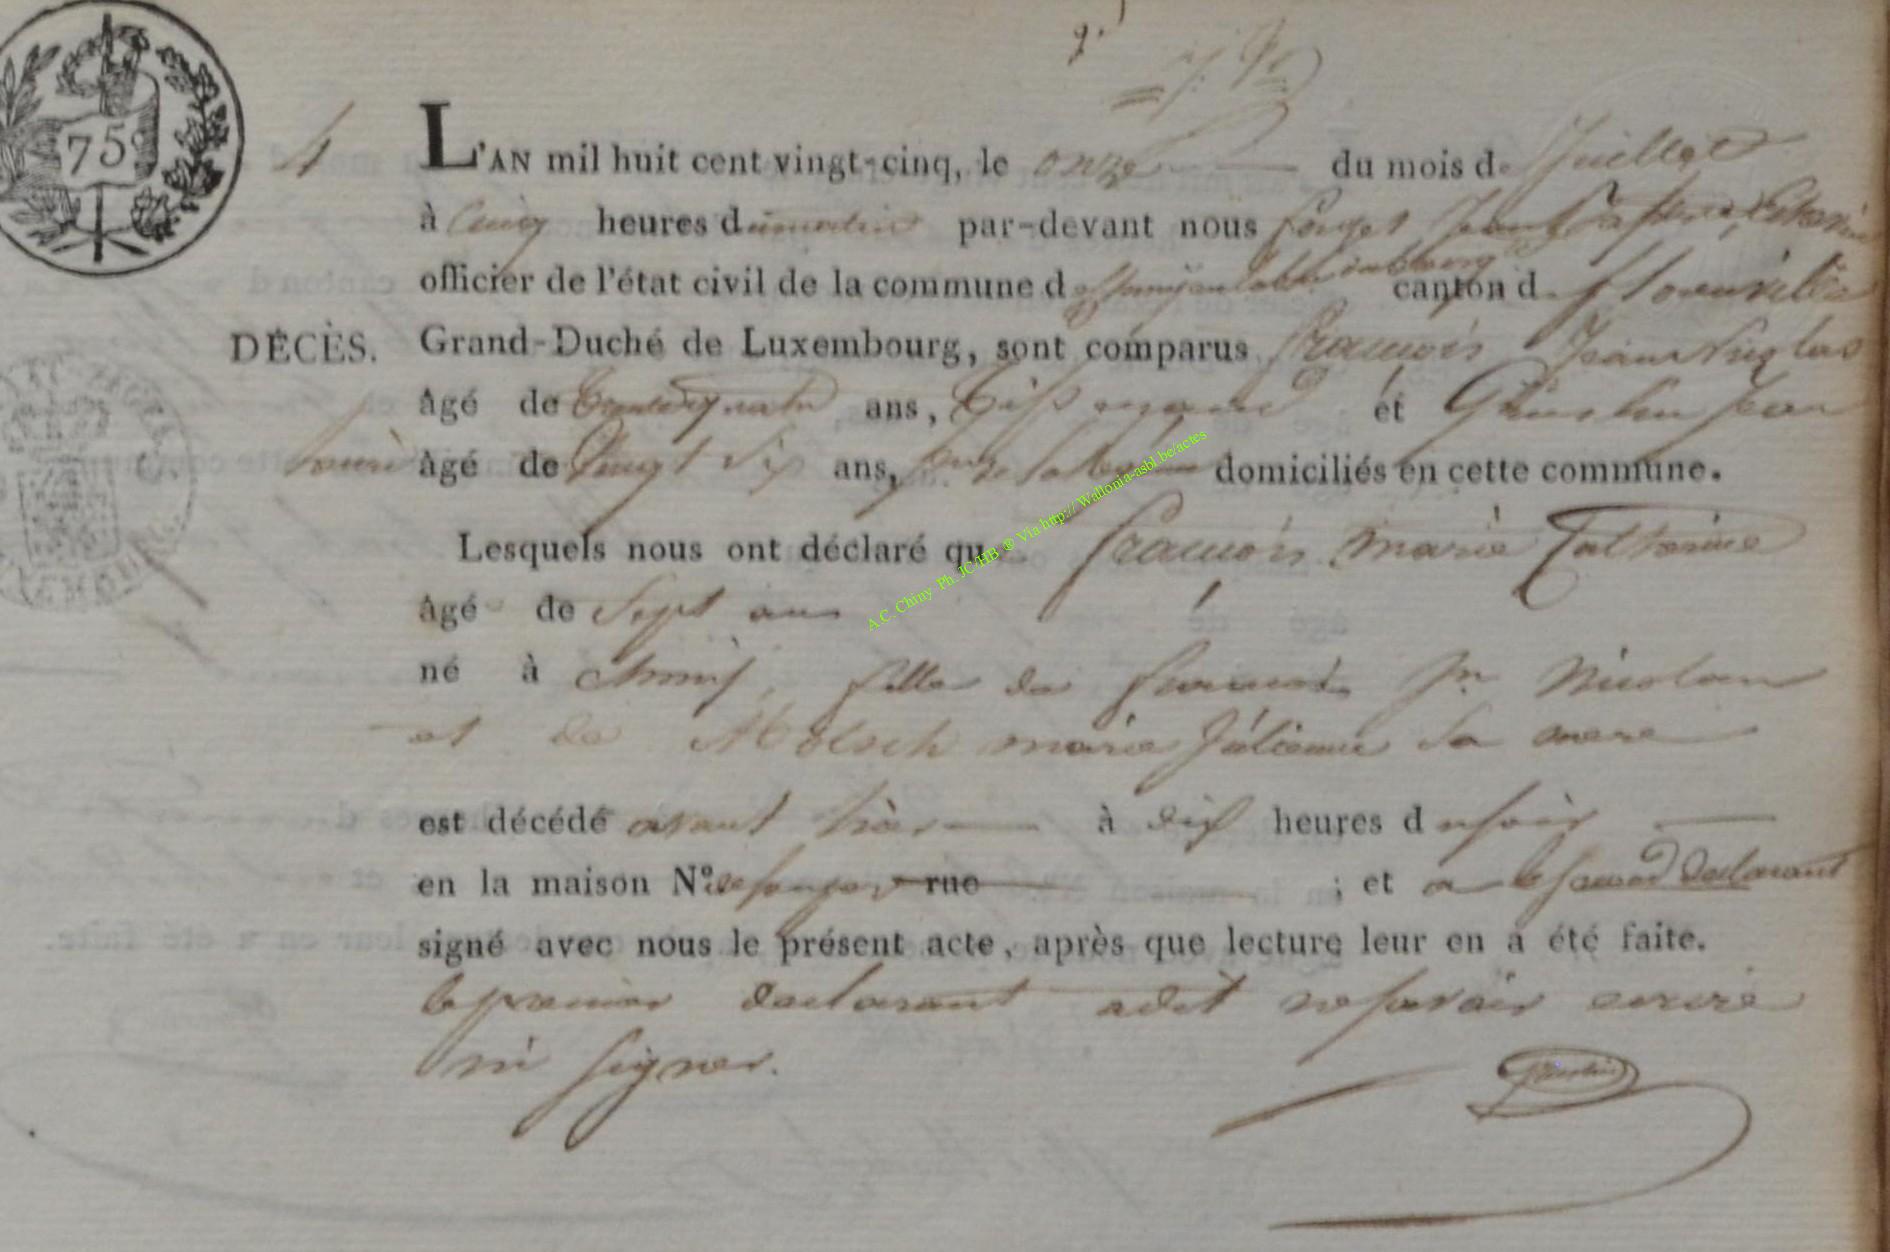 75
4
L'AN mil huit cent vingt-cinq, le onze du mois de Juillet
à Cinq heures du matin par-devant nous Forget Jean
officier de l'état civil de la commune d canton d florenville
DÉCÈS. Grand-Duché de Luxembourg, sont comparus François Jean Nicolas
âgé de trente quatre ans, Tisserand et Ghislin Jean
âgé de Vingt Six ans, domiciliés en cette commune.
Lesquels nous ont déclaré que François Marie Catherine
âgé de Sept ans
né à Chiny, fille de François Jn Nicolas
et de Molsch marie Julienne Sa mere
est décédé avant hier à dix heures du soir
en la maison No. rue ; et a le second declarant
signé avec nous le présent acte, après que lecture leur en a été faite.
le premier declarant a dit ne savoir ecrire
ni signer.
A.C. Chiny Ph. JC/HB ® Via http://Wallonia-asbl.be/actes